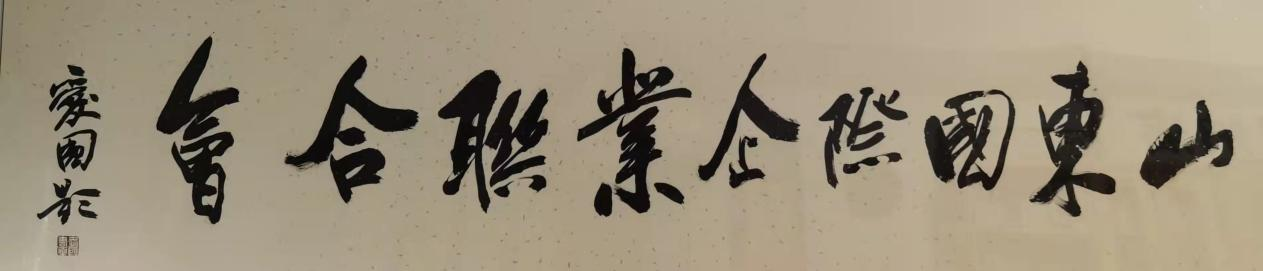 山東國際企業聯合會
愛國題